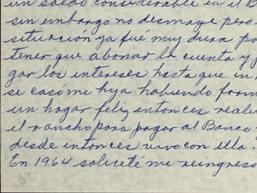 un saldo considerable en el B
sin embargo no desmaye pero
situacion ya fué muy dura po
tener que abonar la cuenta y
gar los intereses hasta que un
se casó me hija habiendo form
un hogar feliz entonces reali
el rancho para pagar al Banco
desde entonces vivo con ella.
En 1964 solicité me reingreso